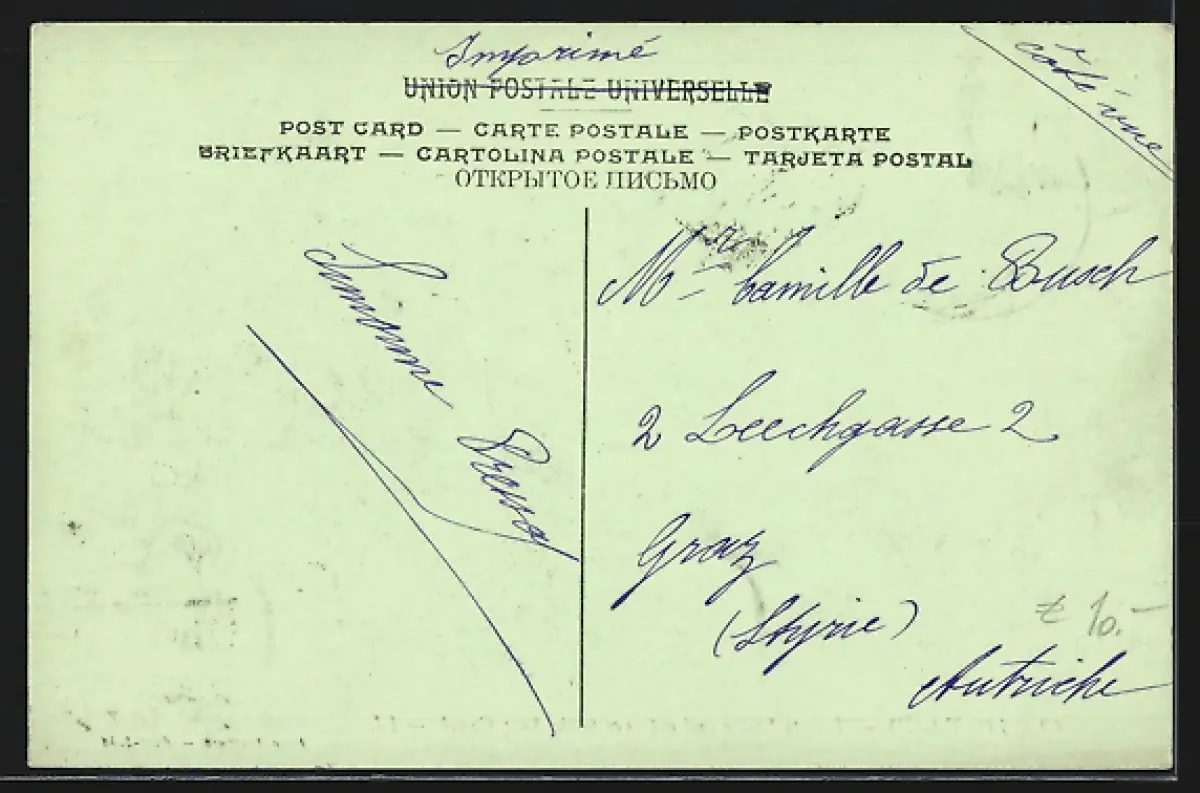 Imprimé
côté vue
UNION POSTALE UNIVERSELLE
POST CARD — CARTE POSTALE — POSTKARTE
BRIEFKAART — CARTOLINA POSTALE — TARJETA POSTAL
ОТКРЫТОЕ ПИСЬМО
Mr Camille de Busch
2 Leechgasse 2
Graz
(Styrie)
Autriche
10.-